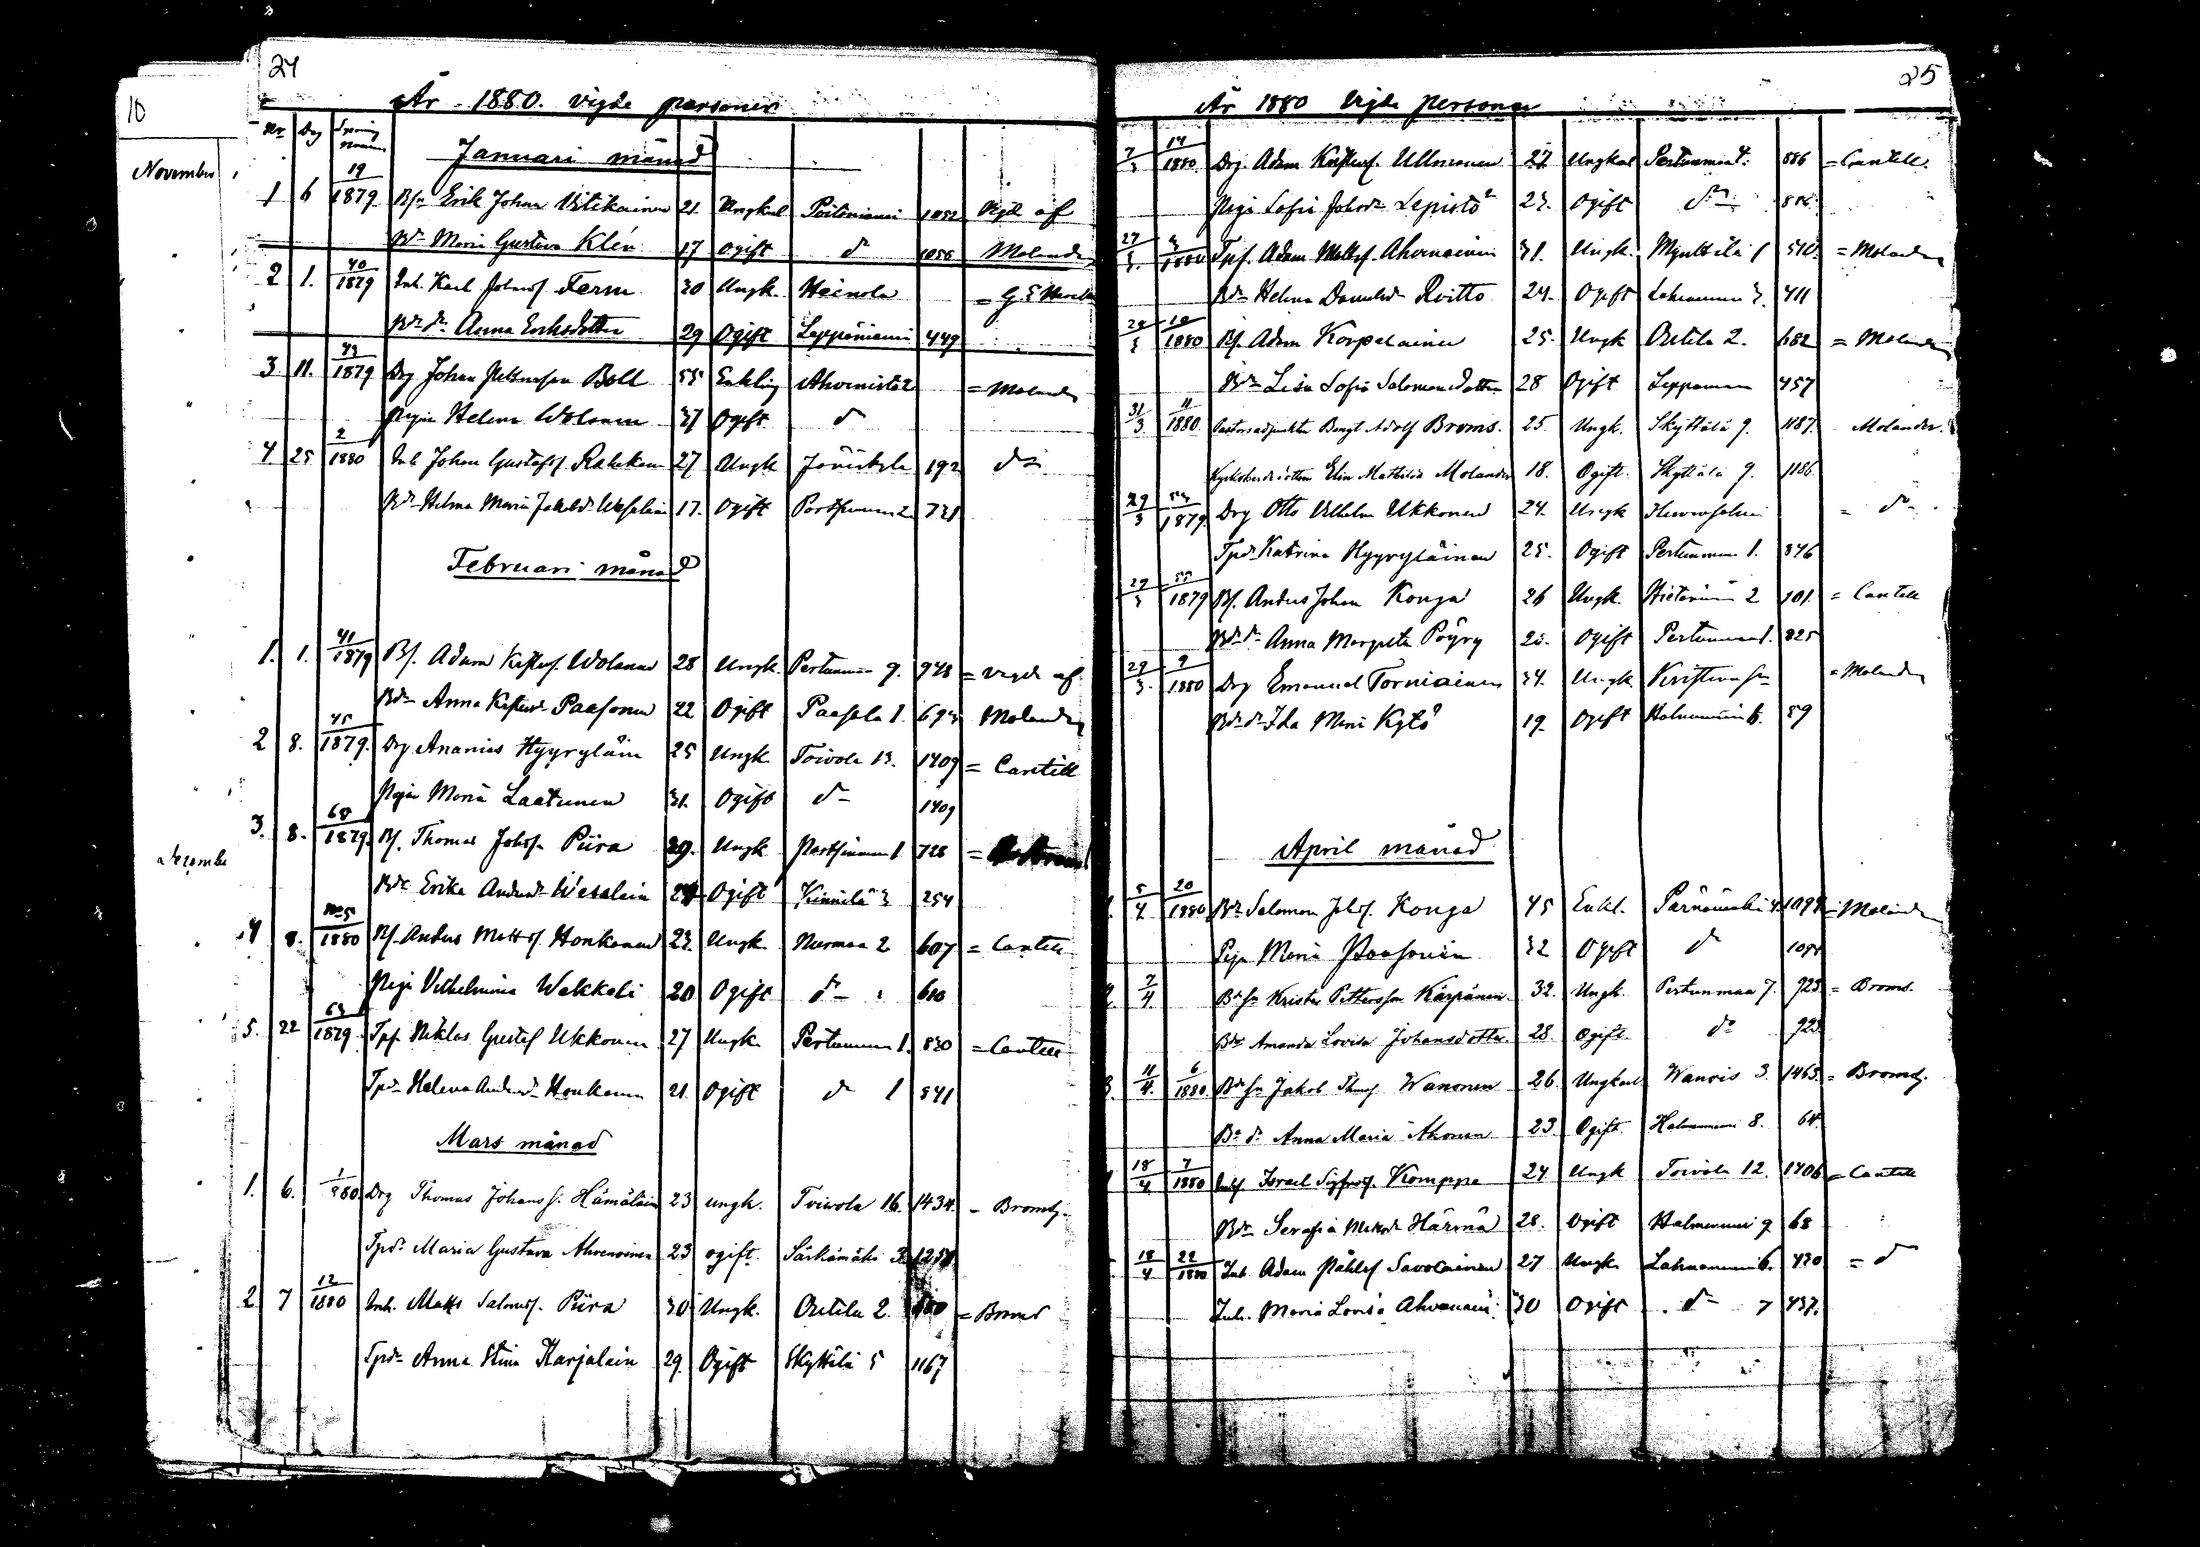 10
November
Decembe
24
År 1880. vigde personer
Nr Dag
Januari månad
1 6 19/1879 Bsn Erik Johan Vitikainen 21 Ungkarl Pöitiniemi 1052 Vigd af
Bdr Maria Gustava Klén 17 Ogift d 1056 Molander
2 1. 40/1879 Inh. Karl Johansf. Ferm 30 Ungk. Heinola = G. E.
Bdr dr Anna Eriksdotter 29 Ogift Leppäniemi 449
3 11. 43/1879 Drg Johan Boll 55 Enkling Ahvenisto 2 = Molander
Pigan Helena Wolanen 37 Ogift d
4. 25 2/1880 Inh Johan Gustafsf 27 Ungk 192 do
Bdr Helena Maria Jakobdr 17. Ogift 2 721
Februari månad
1. 1. 41/1879 Bf. Adam Kristersf. Wolanen 28 Ungk. Pertunmaa 9. 948 = Vigde af
Bdr Anna Kristersdr Paasonen 22 Ogift Paasola 1. 693 Molander
2 8. 45/1879. Drg Ananias Hyyryläin 25 Ungk. Toivola 13. 1409 = Cantell
Pigan Maria Laatunen 31. Ogift d 1409
3. 8. 68/1879. Bf. Thomas Johsfn Piira 29. Ungk 1 728 =
Bdr Erika Andersdr Wesalain 24 Ogift Kinnilä 3 254
4 8. No 5/1880 Bf. Anders Mattsf. Honkanen 23. Ungk. Nurmaa 2 607 = Cantell
Piga Vilhelmina Wekkeli 20 Ogift d 610
5. 22 63/1879. Tpf. Niklas Gustaf Ukkonen 27 Ungk. Pertunmaa 1. 830 = Cantell
Tpdr Helena Andersdr Honkanen 21. Ogift d 1 841
Mars månad
1. 6. 1/880 Drg Thomas Johansf. Hämäläin 23 ungk. Toivola 16. 1434. - Broms
Tpdr Maria Gustava Ahvenainen 23 ogift. Särkämäki 3. 1251
2 7 12/1880 Inh. Matts Salomsf. Piira 30 Ungk. Ortila 2. 680 = Broms
Tpdr Anna Stina Karjalain 29. Ogift Skyttälä 5 1167
25
År 1880 Vigde personer
7/3 14/1880 Drg Adam Kristersf. Ukkonen 27 Ungkarl Pertunmaa 4. 886 = Cantell.
Piga Sofia Johsdr Lepistö 23. Ogift do 886
27/3. 3/1880 Tpf. Adam Mattsf. Ahvenainen 31. Ungk. Mynttilä 1 510. = Molander
Bdr Helena Danielsdr Roitto 24. Ogift Lahnaniemi 3. 411
28/3 10/1880 Bf. Adam Korpelainen 25. Ungk Ortila 2. 682 = Molander
Bdr Lisa Sofia Salomonsdotter 28 Ogift Leppäniemi 457
31/3. 11/1880. Pastorsadjunkten Bengt Adolf Broms. 25. Ungk. Skyttälä 9. 1187. Molander.
Kyrkoherdedottern Elin Mathilda Molander 18. Ogift. Skyttälä 9. 1186
29/3 54/1879. Drg Otto Vilhelm Ukkonen 24. Ungk = do
Tpdr Katrina Hyyryläinen 25. Ogift Pertunmaa 1. 846
29/3 55/1879 Bf. Anders Johan Konga 26 Ungk. Hietaniemi 2 101. = Cantell
Bdr dr Anna Margreta Pöyry 23. Ogift Pertunmaa 1. 825
29/3. 9/1880 Drg Emanuel Torniainen 34. Ungk. Kristina = Molander
Bdr dr Ida Maria Kytö 19. Ogift Halmeniemi 6. 59
April månad
5/4 20/1880 Bdr Salomon Johsf. Konga 45 Enkl. Pärnämäki 4. 1094 = Molander
Piga Maria Paasonen 32 Ogift d 1094
7/4. Bdsn Krister Pettersson Kärpänen 32. Ungk. Pertunmaa 7. 923 = Broms.
Bdr Amanda Lovisa Johansdotter 28. Ogift. do 923
3. 11/4. 6/1880. Bdsn Jakob Thomsf. Wanonen 26. Ungkarl Wanois 3. 1463. = Broms.
Bdr dr Anna Maria Ahonen 23. Ogift. Halmeniemi 8. 64.
18/4 7/1880 Inhsf Israel Sigfridsf. Komppa 24 Ungk Toivola 12. 1406 = Cantell
Bdr Serafia Härmä 28. Ogift Halmeniemi 9. 68
18/4 22/1880 Inh. Adam Påhlsf. Savolainen 27 Ungk. Lahnaniemi 6. 430 = d
Inh. Maria Lovisa Ahvenain 30 Ogift d 7 437.